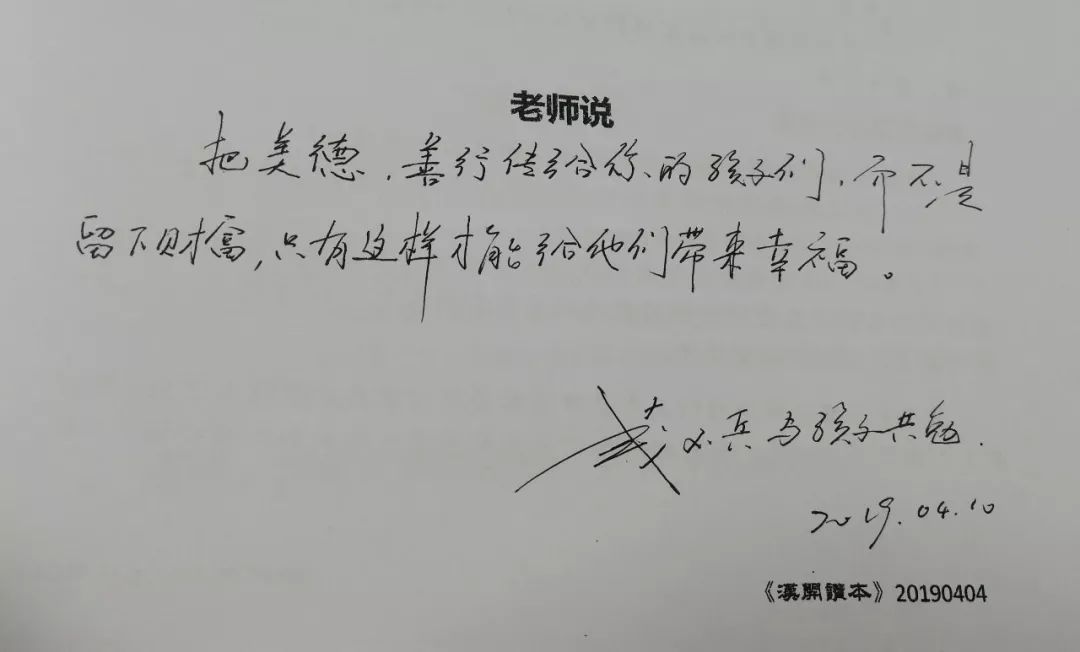 老师说
把美德、善行传给你的孩子们,而不是
留下财富,只有这样才能给他们带来幸福。
必兵与孩子共勉.
2019.04.10
《漢開讀本》20190404